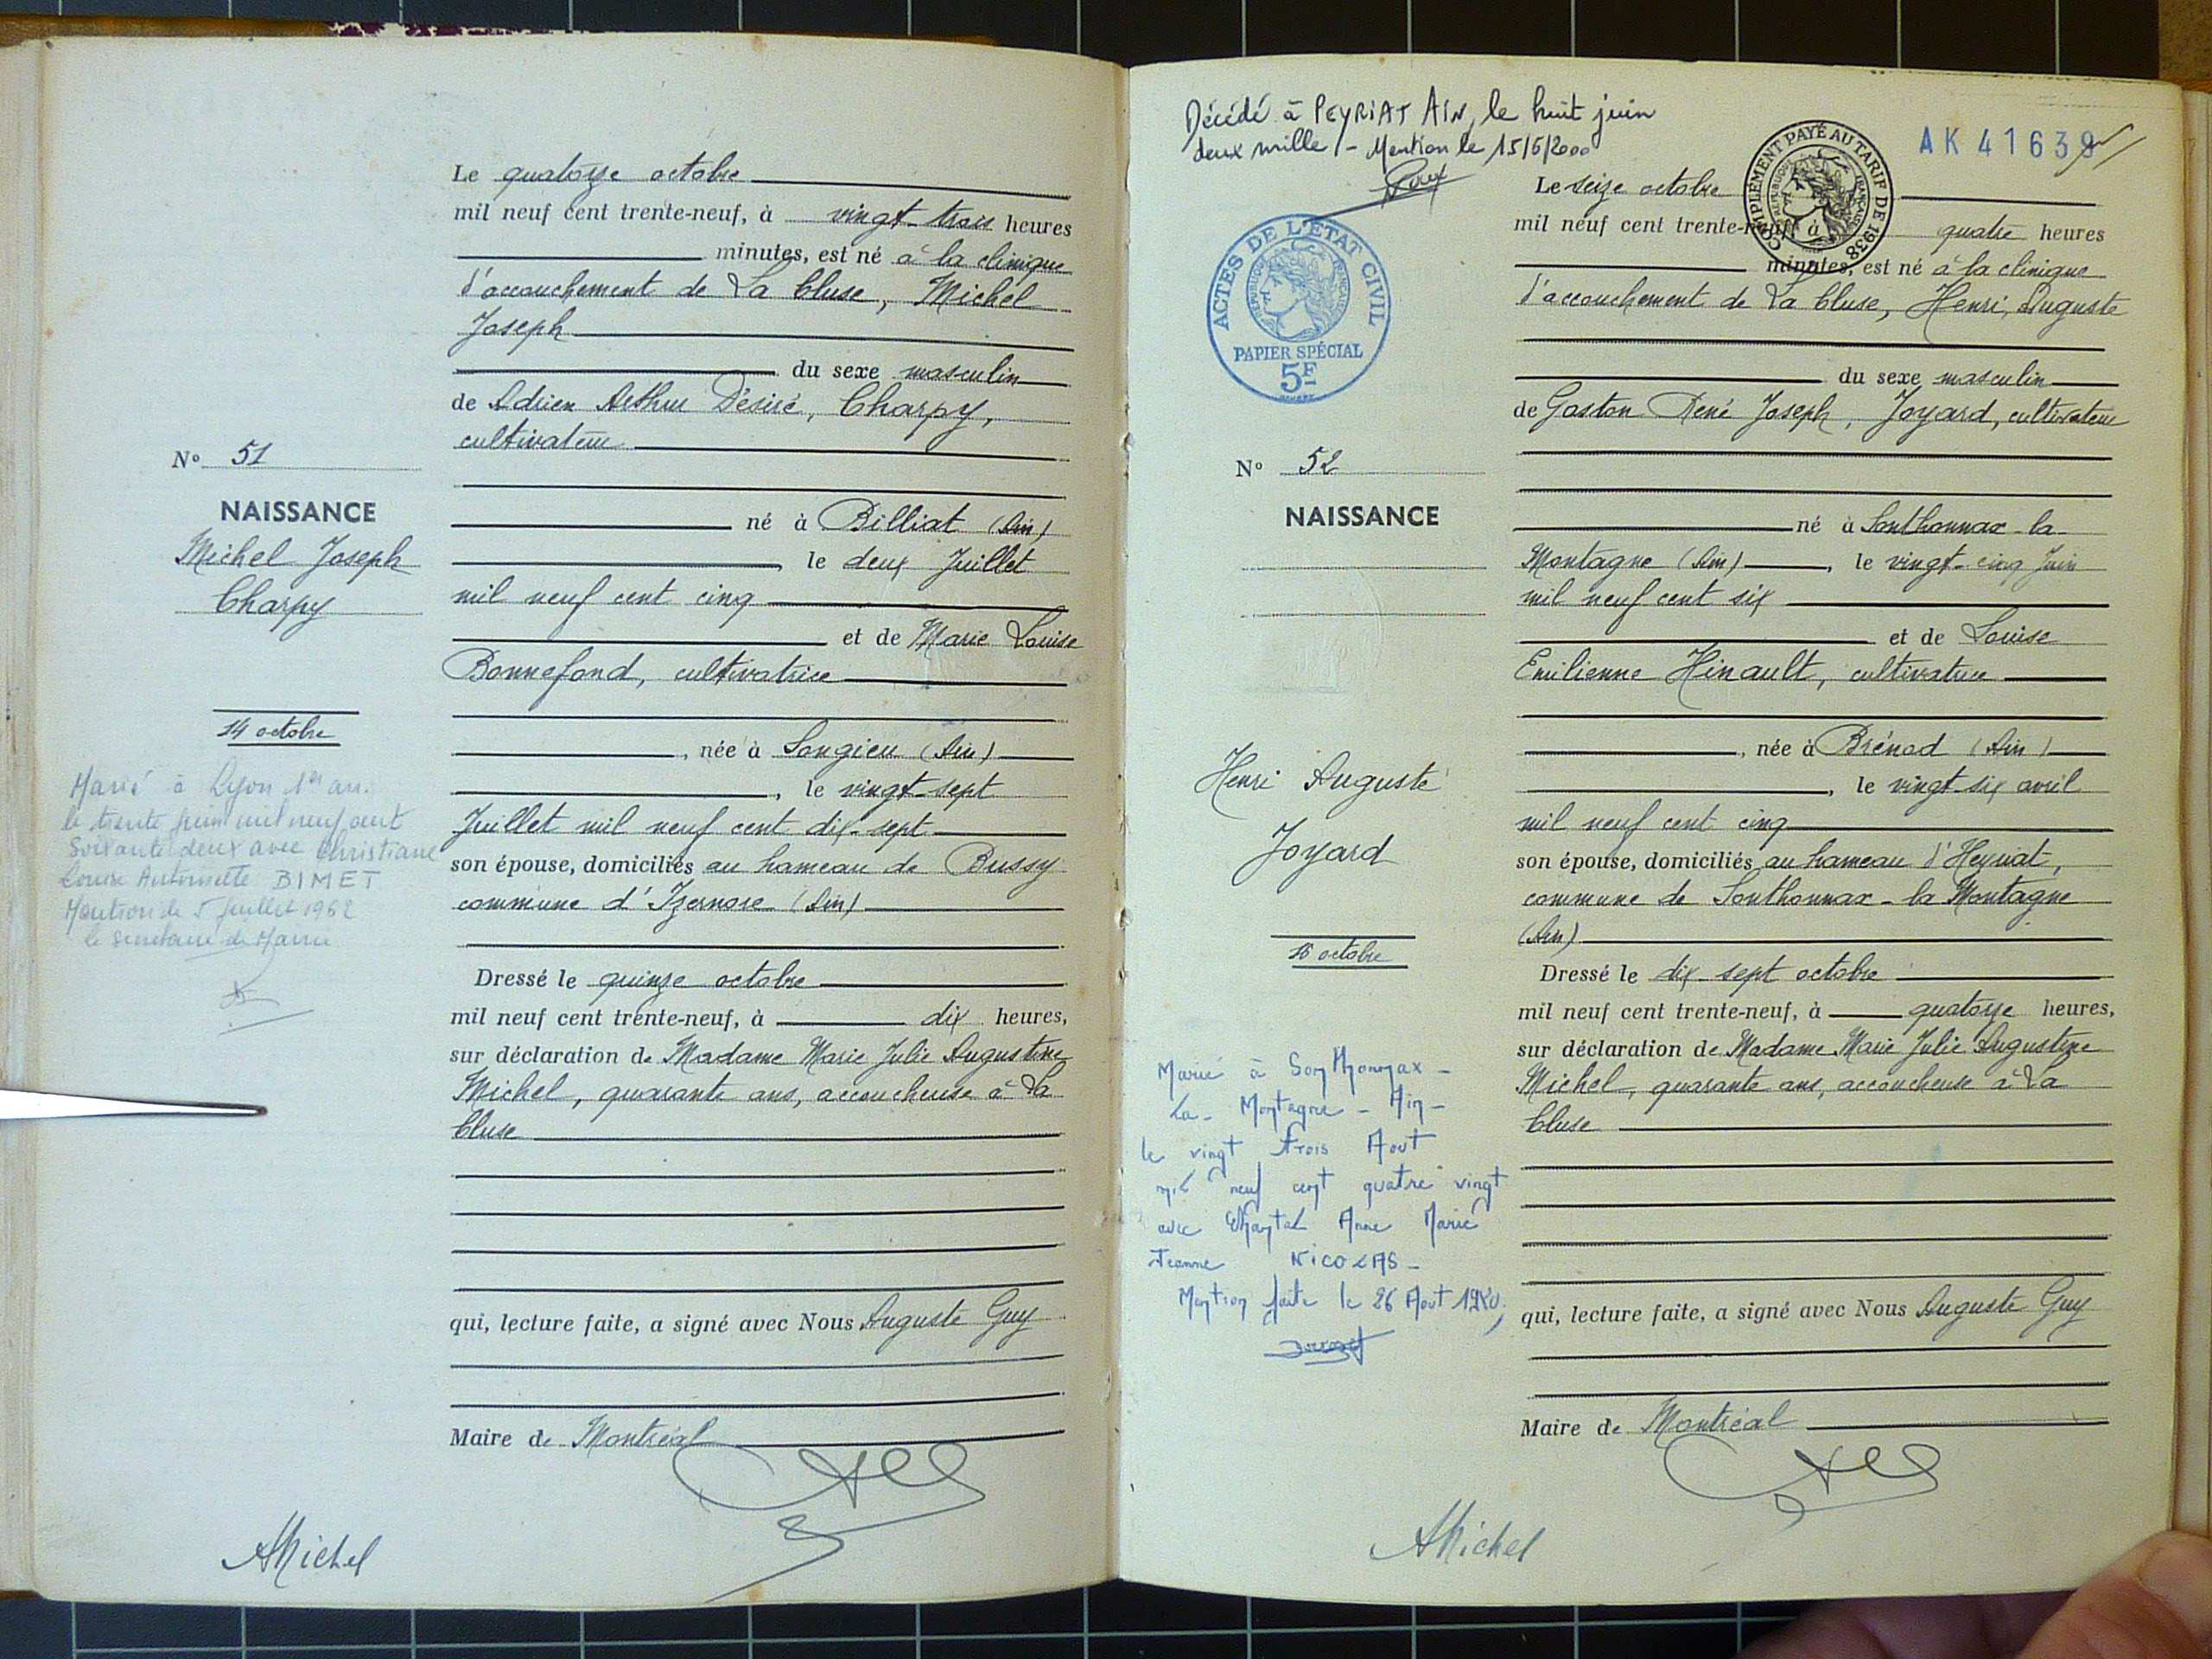 Le quatorze octobre
mil neuf cent trente-neuf, à vingt-trois heures
minutes, est né à la clinique
d'accouchement de La Cluse, Michel
Joseph
du sexe masculin
de Adrien Arthur Désiré, Charpy,
cultivateur
né à Billiat (Ain)
, le deux Juillet
mil neuf cent cinq
et de Marie Louise
Bonnefond, cultivatrice
, née à Songieu (Ain)
, le vingt-sept
Juillet mil neuf cent dix-sept
son épouse, domiciliés au hameau de Bussy
commune d'Izernore (Ain)
Dressé le quinze octobre
mil neuf cent trente-neuf, à dix heures,
sur déclaration de Madame Marie Julie Augustine
Michel, quarante ans, accoucheuse à La
Cluse
qui, lecture faite, a signé avec Nous Auguste Guy
Maire de Montréal
AMichel
N° 51
NAISSANCE
Michel Joseph
Charpy
14 octobre
Marié à Lyon 1er arr.
le trente juin mil neuf cent
soixante deux avec Christiane
Louise Antoinette BIMET
Mention le 5 Juillet 1962
le secrétaire de Mairie
Décédé à PEYRIAT AIN, le huit juin
deux mille - Mention le 15/6/2000
ACTES DE L'ETAT CIVIL
REPUBLIQUE FRANÇAISE
PAPIER SPÉCIAL
5F
COMPLÉMENT PAYÉ AU TARIF DE 1938
REPUBLIQUE FRANÇAISE
AK 41639
N° 52
NAISSANCE
Henri Auguste
Joyard
16 octobre
Marié à Sonthonnax -
La - Montagne - Ain -
le vingt trois Aout
mil neuf cent quatre vingt
avec Chantal Anne Marie
Jeanne NICOLAS -
Mention faite le 26 Aout 1980
Le seize octobre
mil neuf cent trente-neuf, à quatre heures
minutes, est né à la clinique
d'accouchement de La Cluse, Henri, Auguste
du sexe masculin
de Gaston René Joseph, Joyard, cultivateur
né à Sonthonnax-la-
Montagne (Ain), le vingt-cinq Juin
mil neuf cent six
et de Louise
Emilienne Hinault, cultivatrice
, née à Brénod (Ain)
, le vingt-six avril
mil neuf cent cinq
son épouse, domiciliés au hameau d'Heyriat,
commune de Sonthonnax-la Montagne
(Ain)
Dressé le dix-sept octobre
mil neuf cent trente-neuf, à quatorze heures,
sur déclaration de Madame Marie Julie Augustine
Michel, quarante ans, accoucheuse à La
Cluse
qui, lecture faite, a signé avec Nous Auguste Guy
Maire de Montréal
AMichel